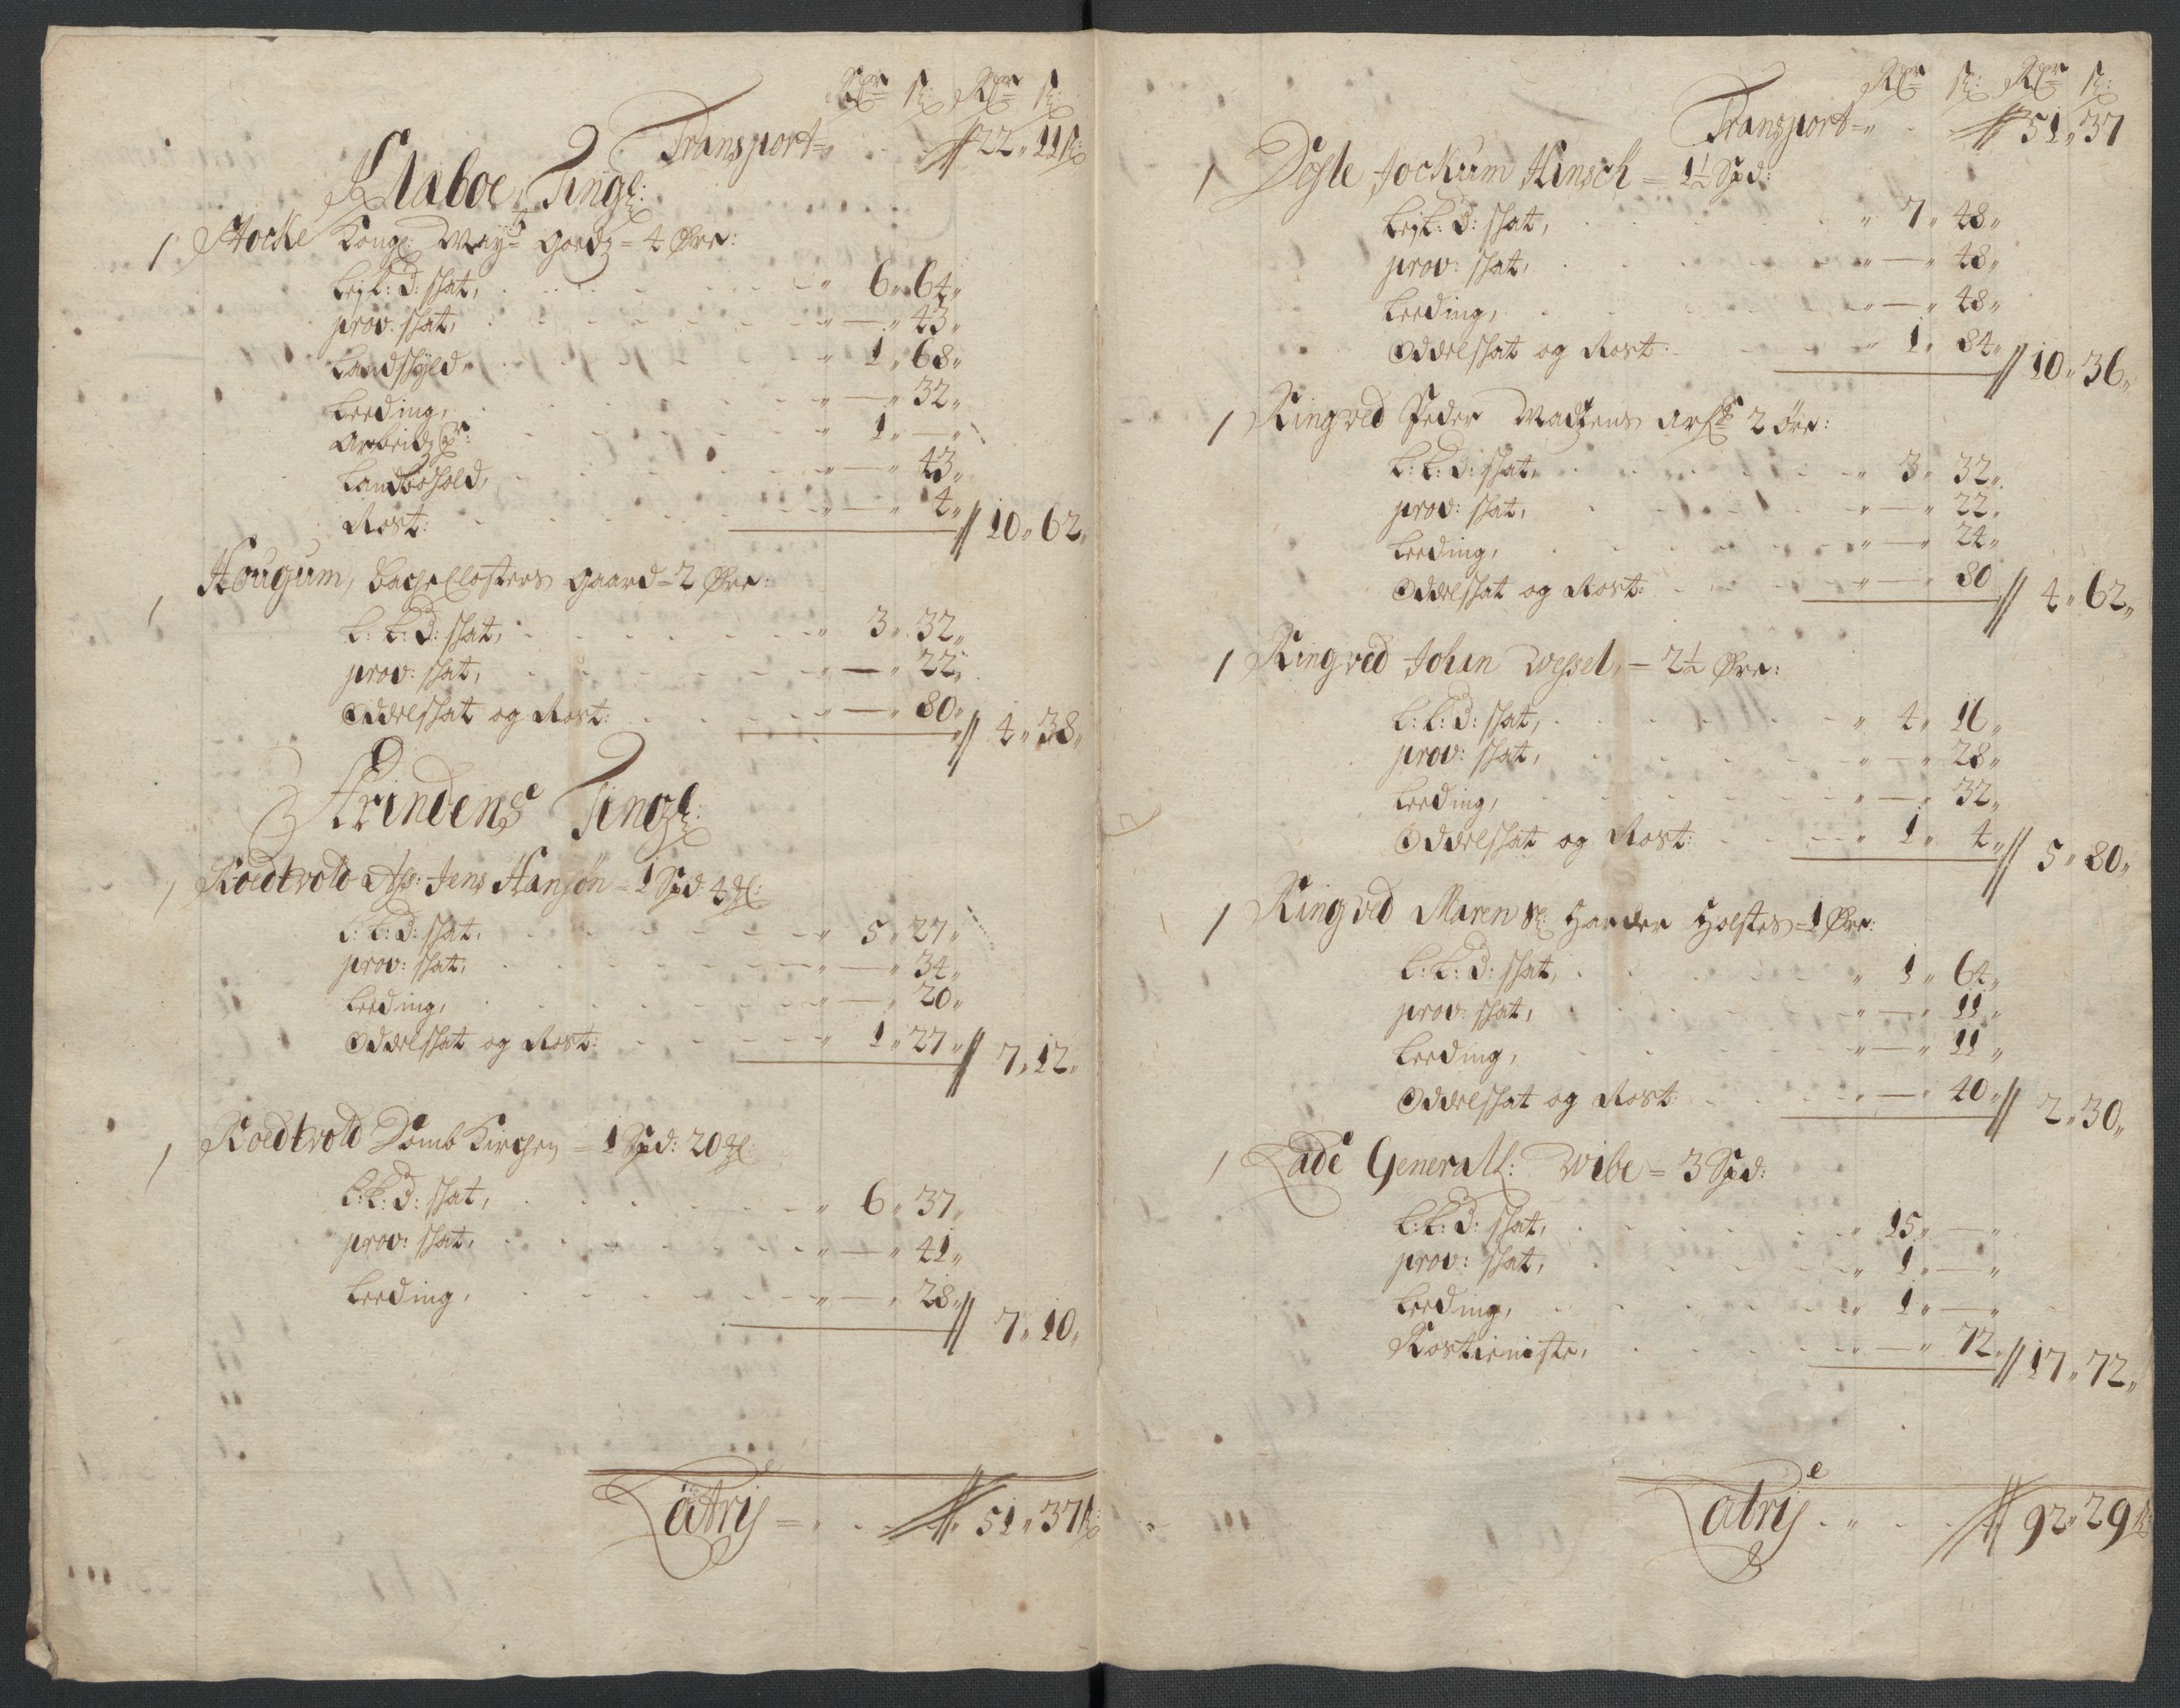 Rdr ß: Rdr ß:
Transport = 22 11 ß:
Klaboe Tingl:
1 Stocke Kongl: Mayts goedz = 4 Øre:
Leyl: d: skat, 6 64
prov: skat, — 43
Landskyld, 1 68
Leeding, — 32
Arbeidzp: 1 —
Landbohold, — 43
Rost: — 4 // 10 62
1 Hougum, Backe Closters gaard = 2 Øre:
L: L: d: skat, 3 32
prov: skat, — 22
Oddelskat og Rost: — 80 // 4 38
Strindens Tingl:
1 Roedtvold Ass: Jens Hansøn = 1 Spd 4 ml:
L: L: d: skat, 5 27
prov: skat, — 34
Leeding, — 20
Oddelskat og Rost: 1 27 // 7 12
1 Roedtvold Domb Kirchen = 1 Spd: 20 ml:
L: L: d: skat, 6 37
prov: skat, — 41
Leeding, — 28 // 7 10
Latris = 51 37 ß:
Rdr ß: Rdr ß:
Transport = 51 37
1 Døsle Jockum Hinsch = 1½ Spd:
Leyl: d: skat, 7 48
prov: skat, — 48
Leeding, — 48
Oddelskat og Rost: 1 84 // 10 36
1 Ringved Peder Madzens Arf: 2 øre:
L: L: d: skat, 3 32
prov: skat, — 22
Leeding, — 24
Oddelskat og Rost: — 80 // 4 62
1 Ringved Johan Wessel, = 2½ Øre:
L: L: d: skat, 4 16
prov: skat, — 28
Leeding, — 32
Oddelskat og Rost: 1 4 // 5 80
1 Ringved Maren Sl: Harder Holstes = 1 Øre:
L: L: d: skat, 1 64
prov: skat, — 11
Leeding, — 11
Oddelskat og Rost: — 40 // 2 30
1 Lade Generall: Wibe = 3 Spd:
L: L: d: skat, 15 —
prov: skat, 1 —
Leeding, 1 —
Rostieniste, — 72 // 17 72
Latris 92 29 ß: